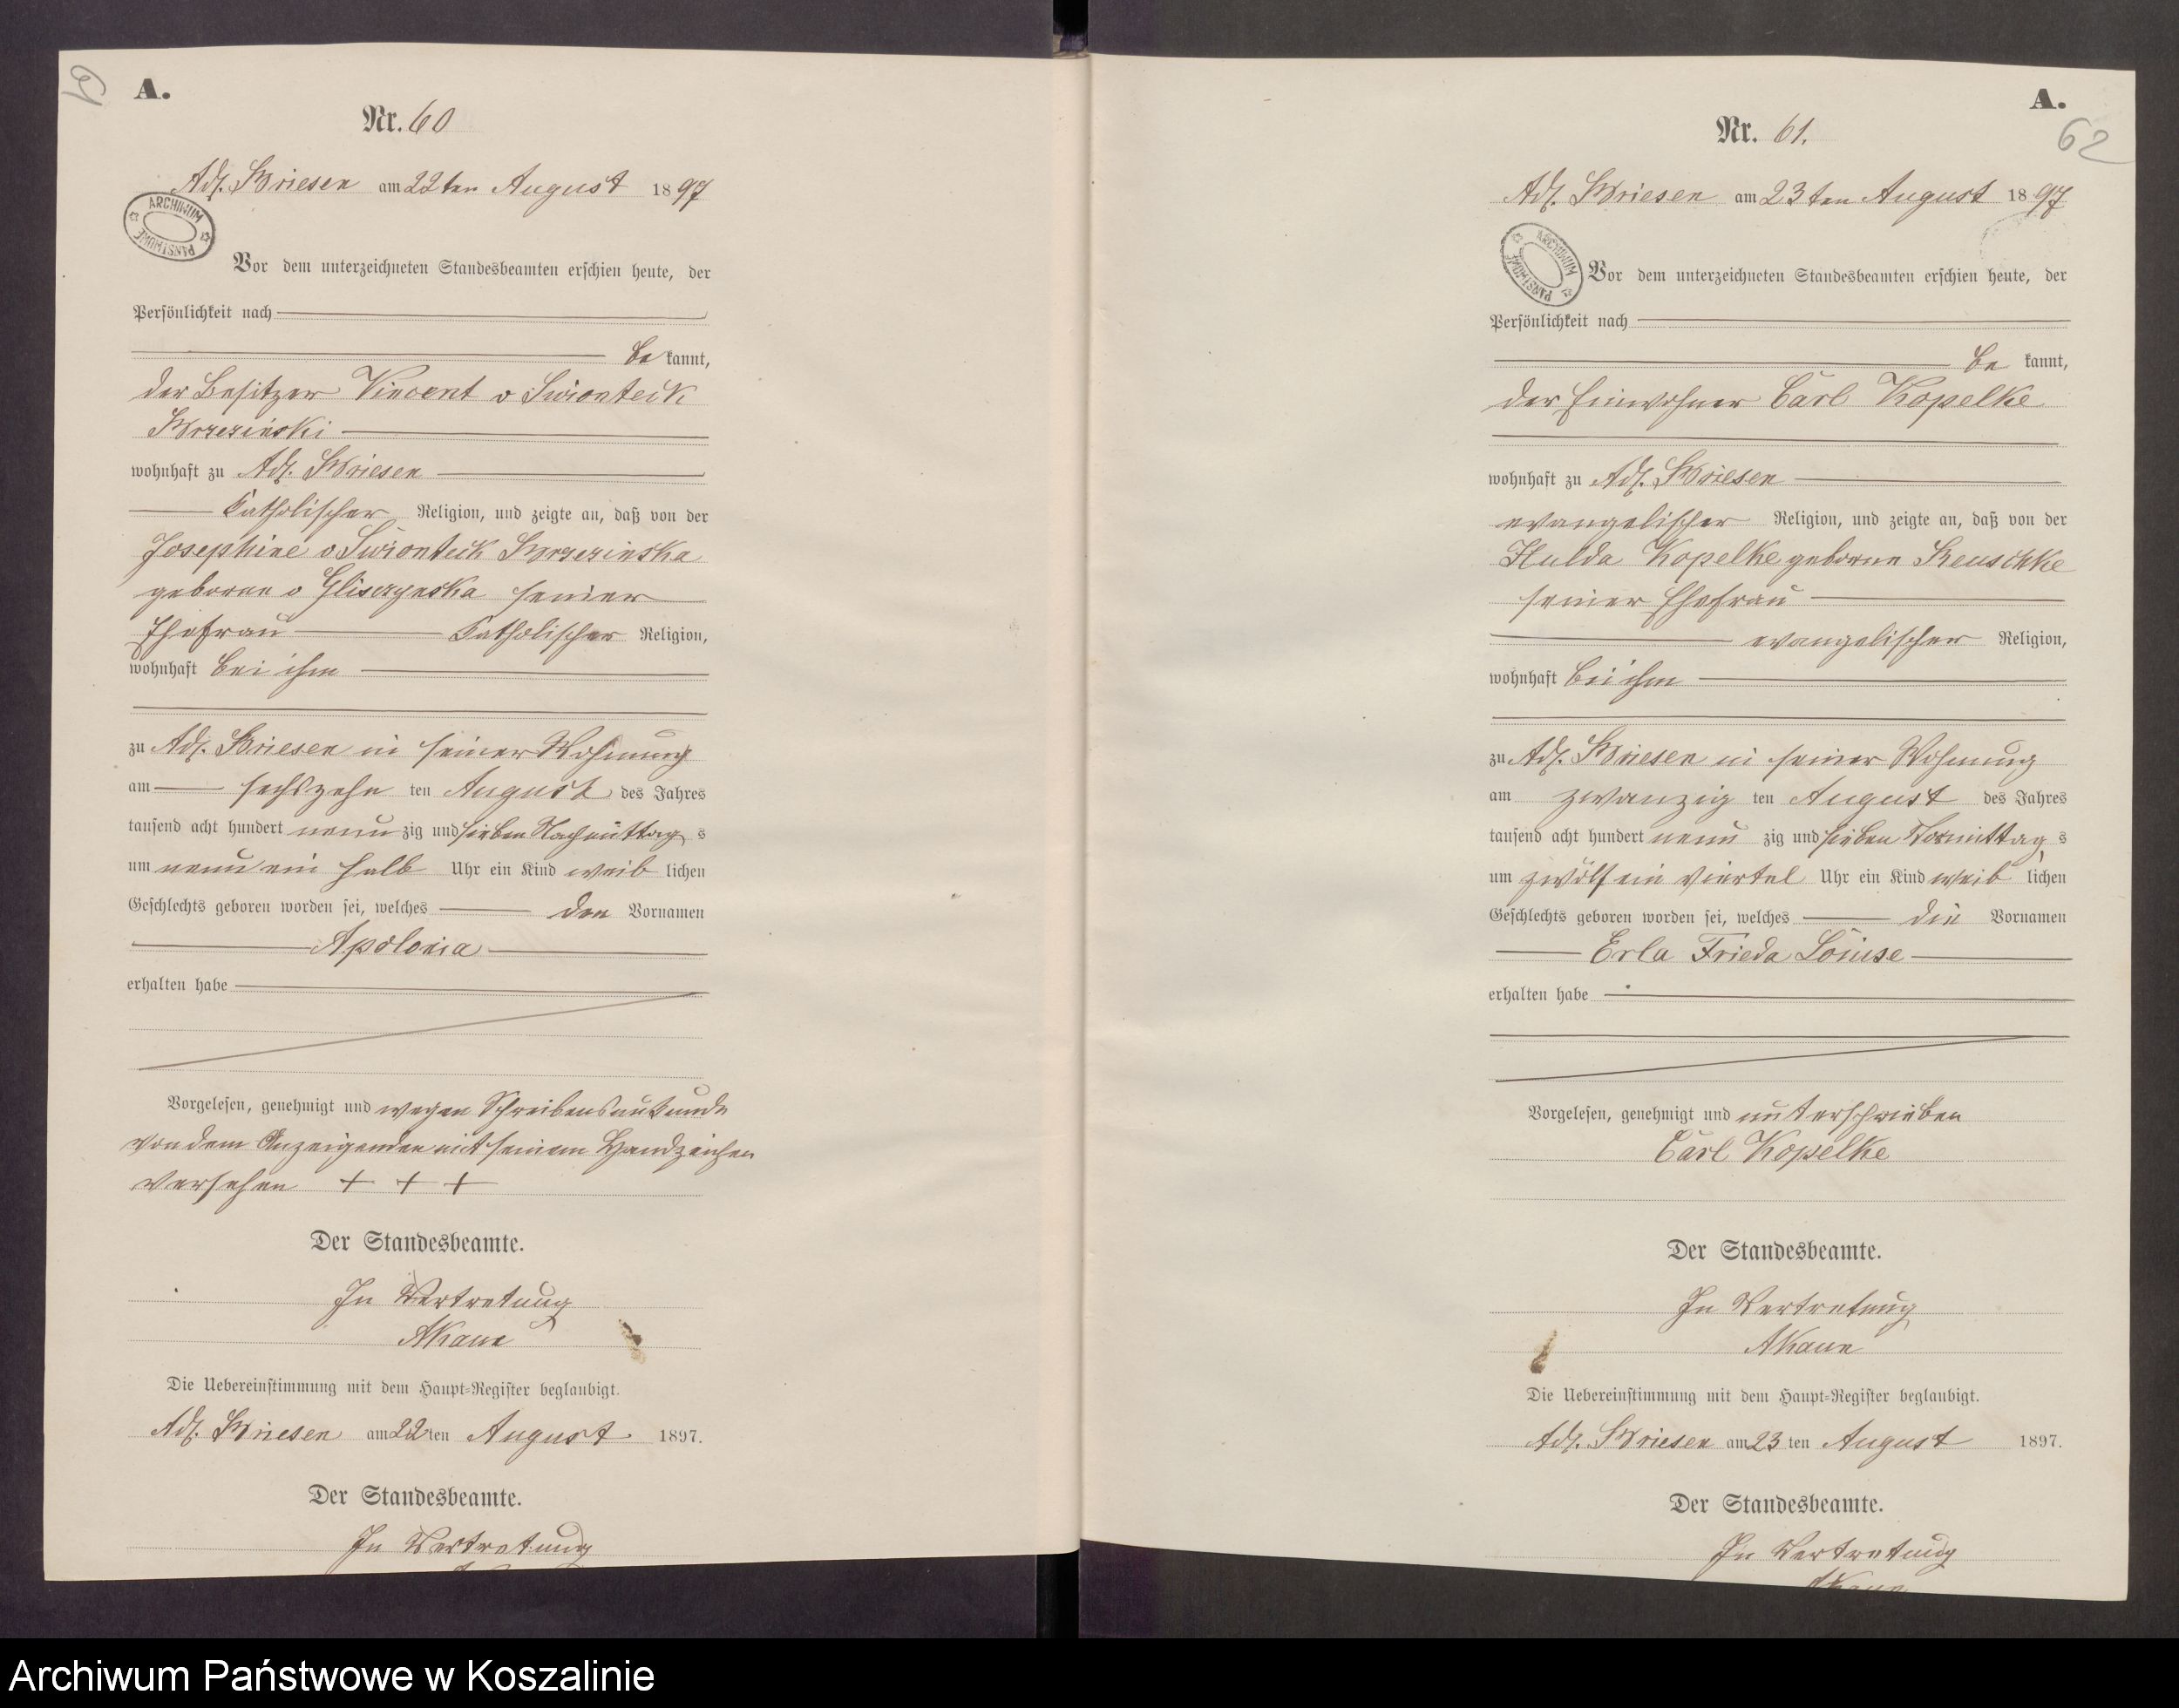 A.
Nr. 60
Adl. Briesen am 22ten August 1897
ARCHIWUM PAŃSTWOWE
Vor dem unterzeichneten Standesbeamten erschien heute, der
Persönlichkeit nach
be kannt,
der Besitzer Vincent v Swionteck
Wrzezinski
wohnhaft zu Adl. Briesen
katholischer Religion, und zeigte an, daß von der
Josephine v Swionteck Wrzezinska
geborne v Gliszzynska seiner
Ehefrau katholischer Religion,
wohnhaft bei ihm
zu Adl. Briesen in seiner Wohnung
am sechszehn ten August des Jahres
tausend acht hundert neun zig und sieben Nachmittag s
um neun ein halb Uhr ein Kind weib lichen
Geschlechts geboren worden sei, welches den Vornamen
Apolonia
erhalten habe
Vorgelesen, genehmigt und wegen Schreibensunkunde
von dem Anzeigenden mit seinem Handzeichen
versehen + + +
Der Standesbeamte.
In Vertretung
AKaun
Die Uebereinstimmung mit dem Haupt-Register beglaubigt.
Adl. Briesen am 22 ten August 1897.
Der Standesbeamte.
In Vertretung
A.
62
Nr. 61.
Adl. Briesen am 23ten August 1897
ARCHIWUM PAŃSTWOWE
Vor dem unterzeichneten Standesbeamten erschien heute, der
Persönlichkeit nach
be kannt,
der Einwohner Carl Kopelke
wohnhaft zu Adl. Briesen
evangelischer Religion, und zeigte an, daß von der
Hulda Kopelke geborne Reuschke
seiner Ehefrau
evangelischer Religion,
wohnhaft bei ihm
zu Adl. Briesen in seiner Wohnung
am zwanzig ten August des Jahres
tausend acht hundert neun zig und sieben Vormittag s
um zwölf ein viertel Uhr ein Kind weib lichen
Geschlechts geboren worden sei, welches die Vornamen
Erla Frieda Louise
erhalten habe
Vorgelesen, genehmigt und unterschrieben
Carl Kopelke
Der Standesbeamte.
In Vertretung
AKaun
Die Uebereinstimmung mit dem Haupt-Register beglaubigt.
Adl. Briesen am 23 ten August 1897.
Der Standesbeamte.
In Vertretung
AKaun
Archiwum Państwowe w Koszalinie